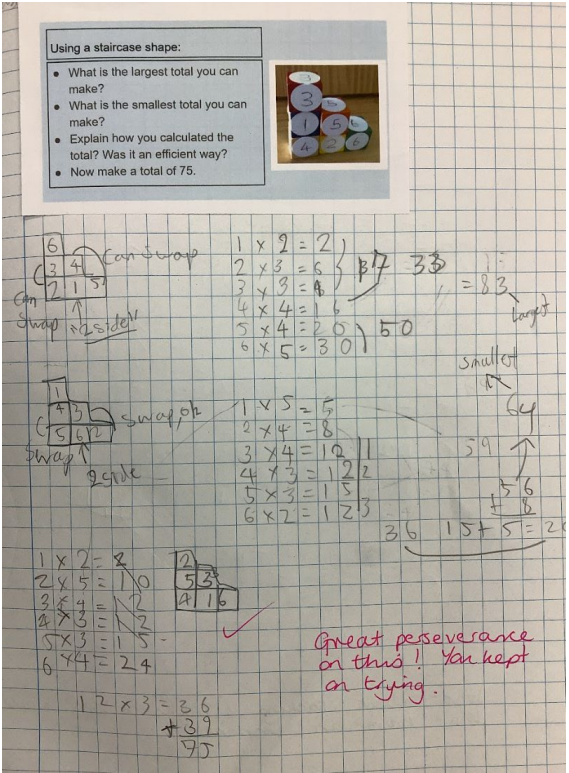 Using a staircase shape:
• What is the largest total you can
make?
• What is the smallest total you can
make?
• Explain how you calculated the
total? Was it an efficient way?
• Now make a total of 75.
3
3
1 5
4 2 6
6
3 4 Can Swap
2 1 5
Can
Swap
2side
1 x 2 = 2
2 x 3 = 6
37 33
4 x 4 = 16
5 x 4 = 20
6 x 5 = 30
50
= 83
Largest
1
4 3 swap
5 6 2
Swap
2side
1 x 5 = 5
2 x 4 = 8
3 x 4 = 12
4 x 3 = 12
5 x 3 = 15
6 x 2 = 12
smallest
64
59
56
+ 8
36 15 + 5 = 20
1 x 2 = 2
2 x 5 = 10
3 x 4 = 12
4 x 3 = 12
5 x 3 = 15
6 x 4 = 24
2
5 3
4 1 6
12 x 3 = 36
+ 39
75
Great perseverance
on this! You kept
on trying.